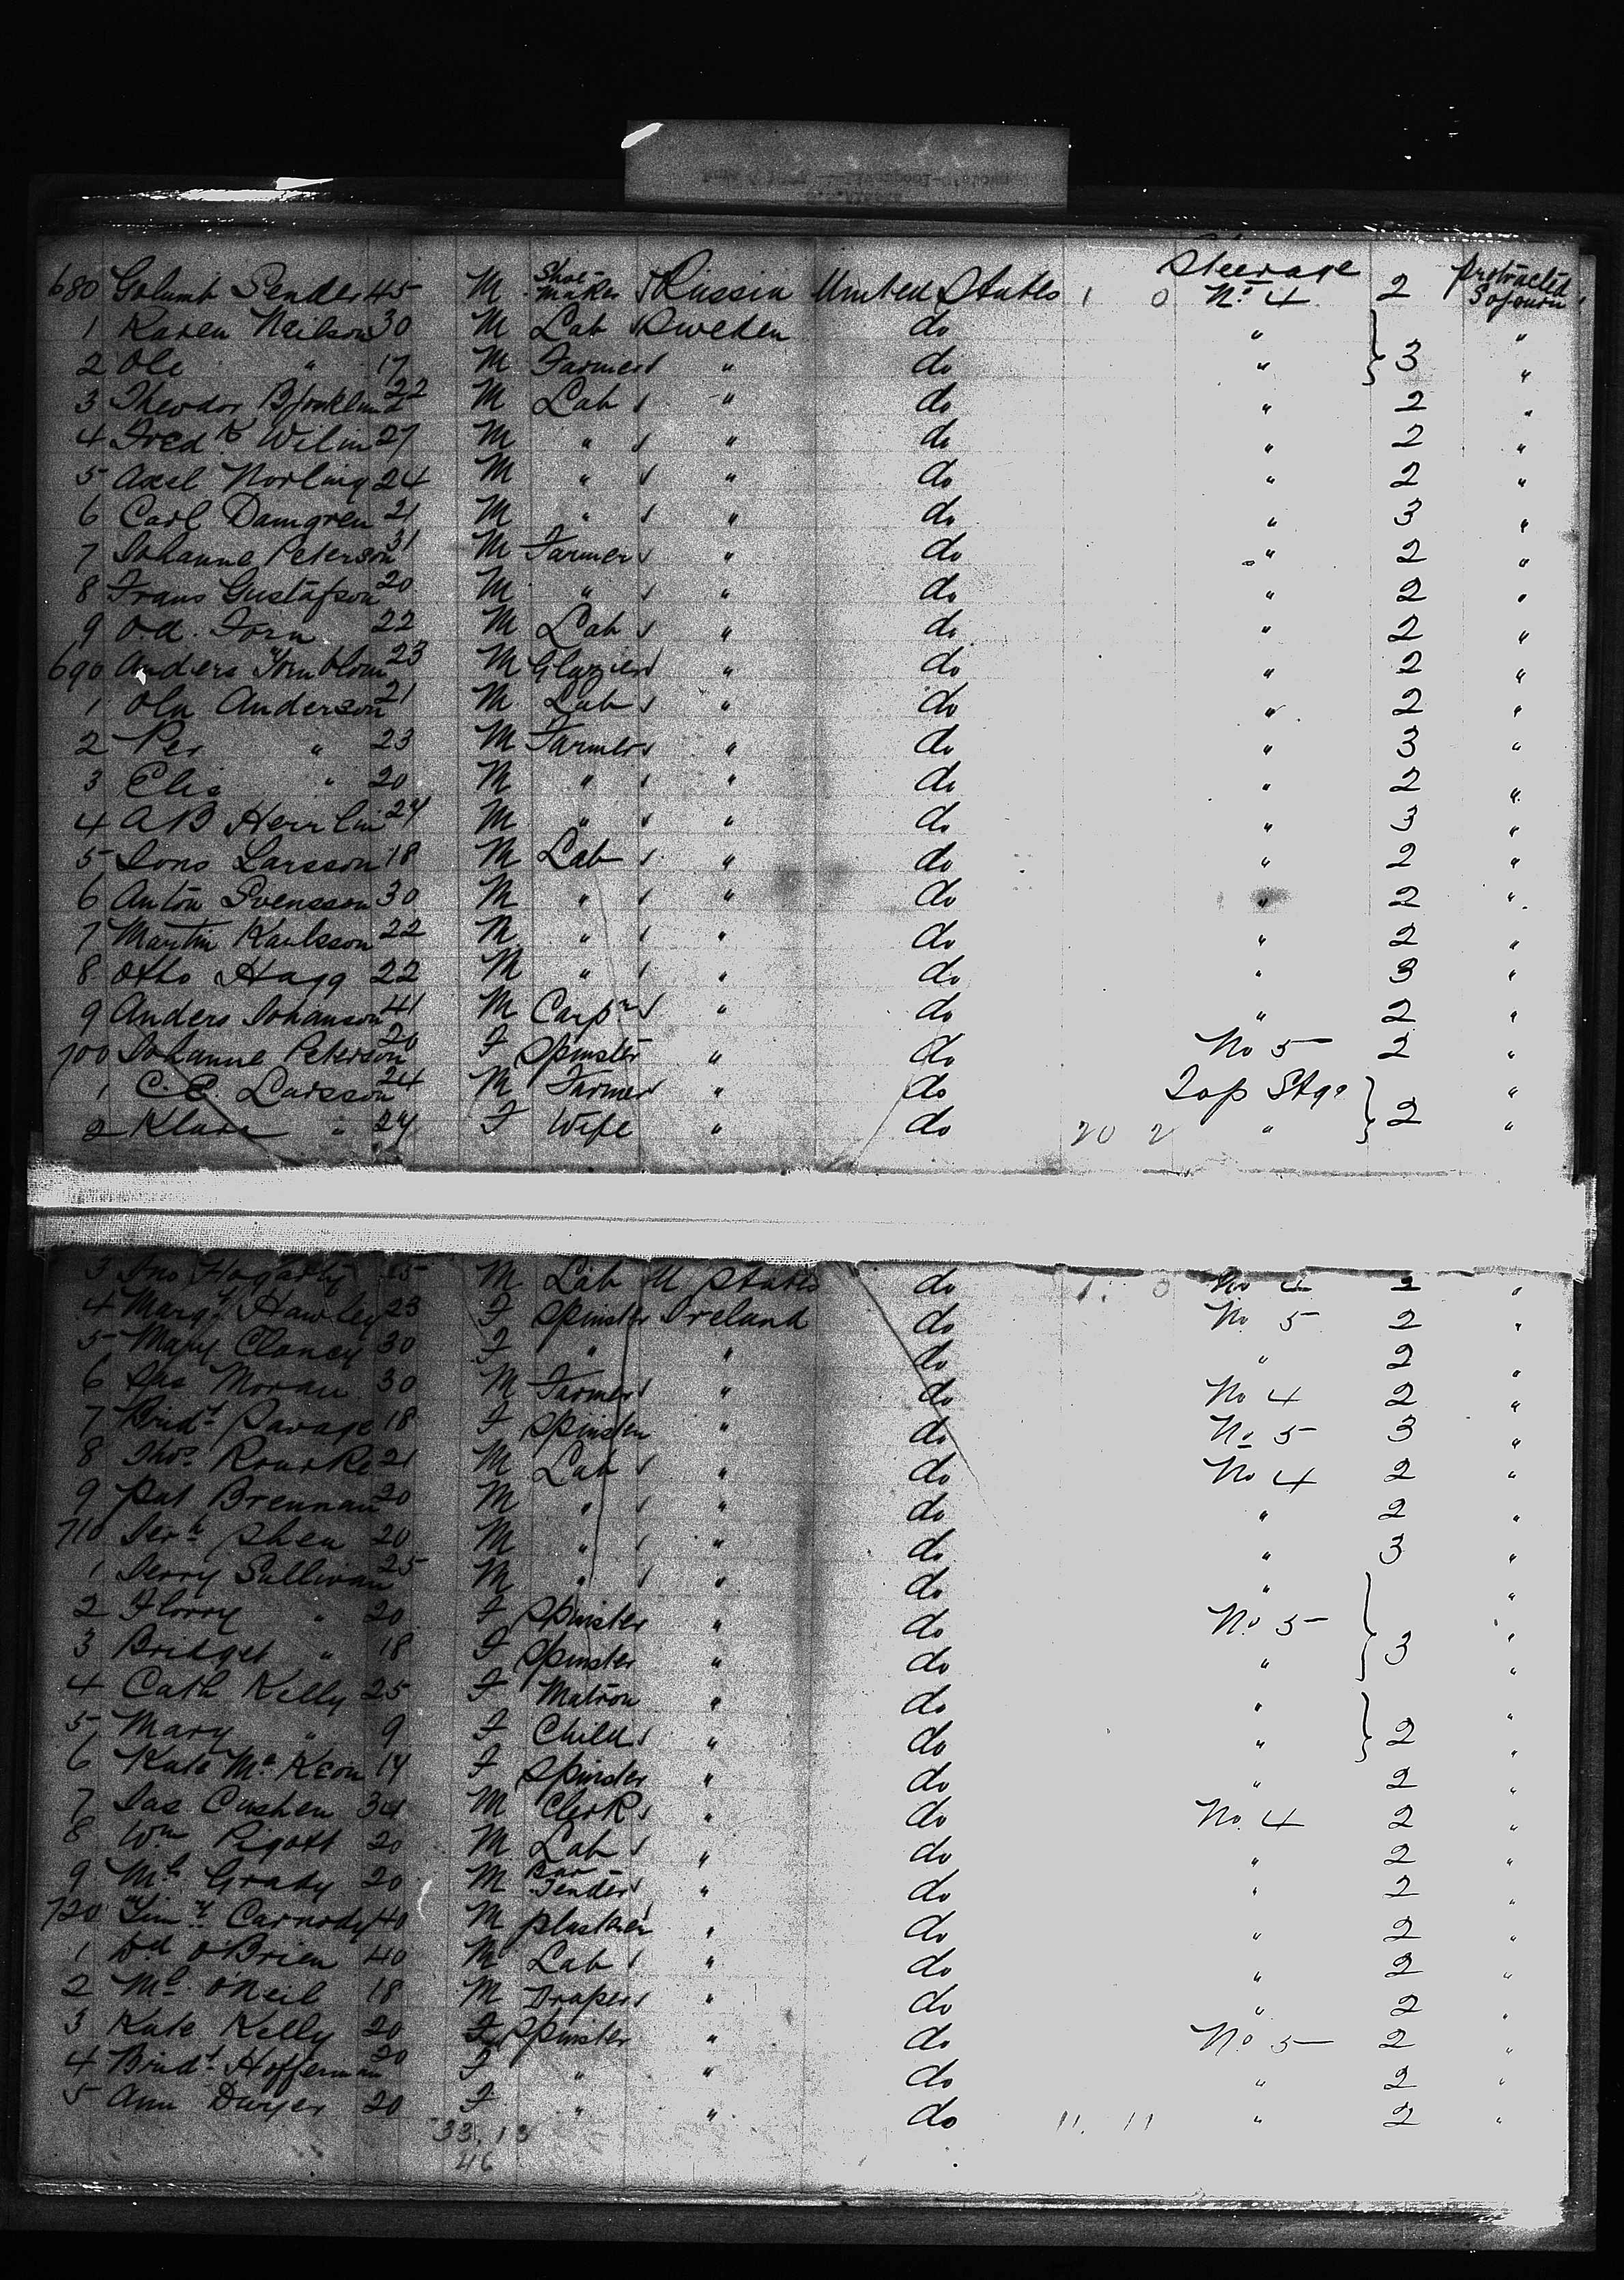 Steerage
680 Golumb Sender 45 M Shoe-maker Russia United States 1 0 No 4 2 Protracted Sojourn
1 Karen Neilson 30 M Lab Sweden do " "
2 Ole " 17 M Farmer " do " 3 "
3 Theodor Bjorklund 22 M Lab " do " 2 "
4 Fredk Wilin 27 M " " do " 2 "
5 Axel Norling 24 M " " do " 2 "
6 Carl Damgren 21 M " " do " 3 "
7 Johanne Peterson 31 M Farmer " do " 2 "
8 Frans Gustafson 20 M " " do " 2 "
9 O.A. Forn 22 M Lab " do " 2 "
690 Anders 23 M Glazier " do " 2 "
1 Ola Anderson 21 M Lab " do " 2 "
2 Per " 23 M Farmer " do " 3 "
3 Elis " 20 M " " do " 2 "
4 A B Herrlin 24 M " " do " 3 "
5 Jons Larsson 18 M Lab " do " 2 "
6 Anton Svensson 30 M " " do " 2 "
7 Martin Karlsson 22 M " " do " 2 "
8 Otto Hagg 22 M " " do " 3 "
9 Anders Johanson 41 M Carpr " do " 2 "
700 Johanne Peterson 20 F Spinster " do No 5 2 "
1 C.E. Larsson 24 M Farmer " do Top Stge "
2 Klara " 24 F Wife " do 20 2 " 2 "
3 Jno Hogarty M Lab U States do 1 0 No 4 2 "
4 Margt Hawley 23 F Spinster Ireland do No 5 2 "
5 Mary Clancy 30 F " " do " 2 "
6 Jas Moran 30 M Farmer " do No 4 2 "
7 Bridt Savage 18 F Spinster " do No 5 3 "
8 Thos Rourke 21 M Lab " do No 4 2 "
9 Pat Brennan 20 M " " do " 2 "
710 Jerh Shea 20 M " " do " 3 "
1 Jerry Sullivan 25 M " " do " "
2 Florry " 20 F Spinster " do No 5 "
3 Bridget " 18 F Spinster " do " 3 "
4 Cath Kelly 25 F Matron " do " "
5 Mary " 9 F Child " do " 2 "
6 Kate McKeon 14 F Spinster " do " 2 "
7 Jas Cushen 34 M Clerk " do No 4 2 "
8 Wm Pigott 20 M Lab " do " 2 "
9 Ml Grady 20 M Bar-Tender " do " 2 "
720 Timy Carmody 40 M plasterer " do " 2 "
1 Dd O'Brien 40 M Lab " do " 2 "
2 Ml O'Neil 18 M Draper " do " 2 "
3 Kate Kelly 20 F Spinster " do No 5 2 "
4 Bridt Hofferman 20 F " " do " 2 "
5 Ann Dwyer 20 F " " do 11. 11 " 2 "
33. 13
46